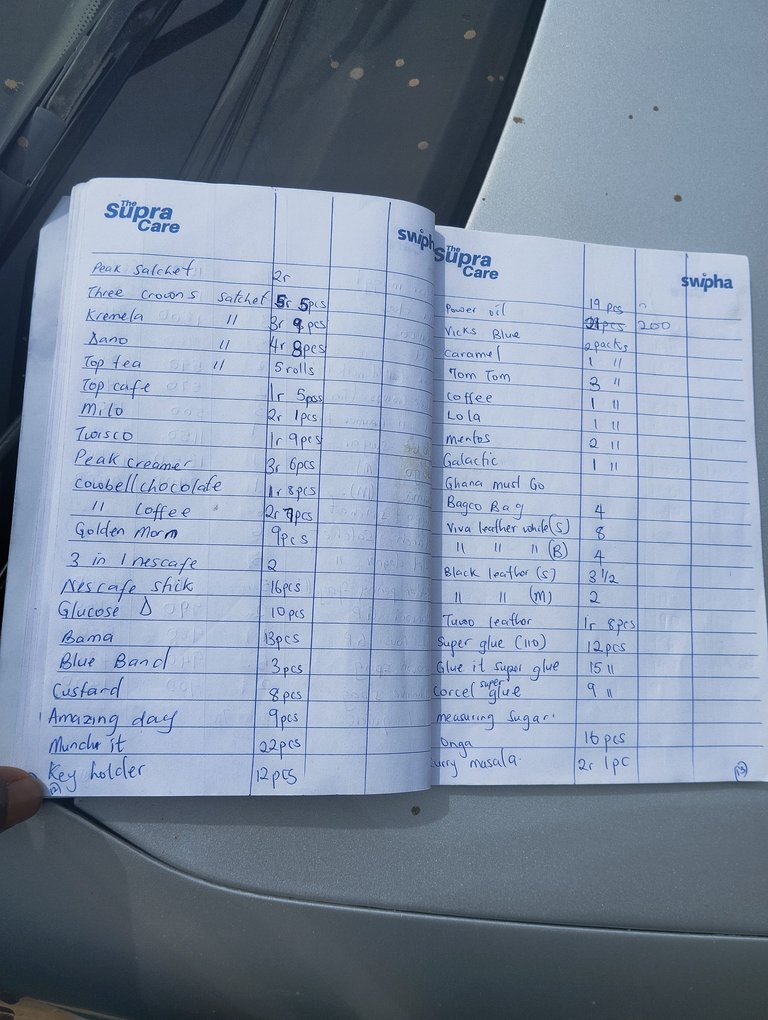 The Supra Care
swipha
Peak Satchet 2r
Three crowns satchet 5r 5pcs
Kremela " 3r 9pcs
Dano " 4r 8pcs
Top tea " 5 rolls
Top cafe 1r 5pcs
Milo 2r 1pcs
Twisco 1r 9pcs
Peak creamer 3r 6pcs
cowbell chocolate 1r 8pcs
" coffee 2r 7pcs
Golden Morn 9pcs
3 in 1 nescafe 2
Nescafe stick 16pcs
Glucose D 10pcs
Bama 13pcs
Blue Band 3pcs
Custard 8pcs
Amazing day 9pcs
Munch it 22pcs
Key holder 12pcs
(12)
The Supra Care
swipha
Power oil 19 pcs
Vicks Blue pcs 200
caramel 2 packs
Tom Tom 1 "
coffee 3 "
Lola 1 "
mentos 1 "
Galactic 2 "
Ghana must Go 1 "
Bagco Bag 4
Viva leather white (S) 8
" " " (B) 4
Black leather (S) 3 1/2
" " (m) 2
Tuwo leather 1r 8pcs
Super glue (110) 12pcs
Glue it super glue 15 "
corcel super glue 9 "
measuring Sugar.
Onga 16 pcs
urry masala. 2r 1pc
(13)